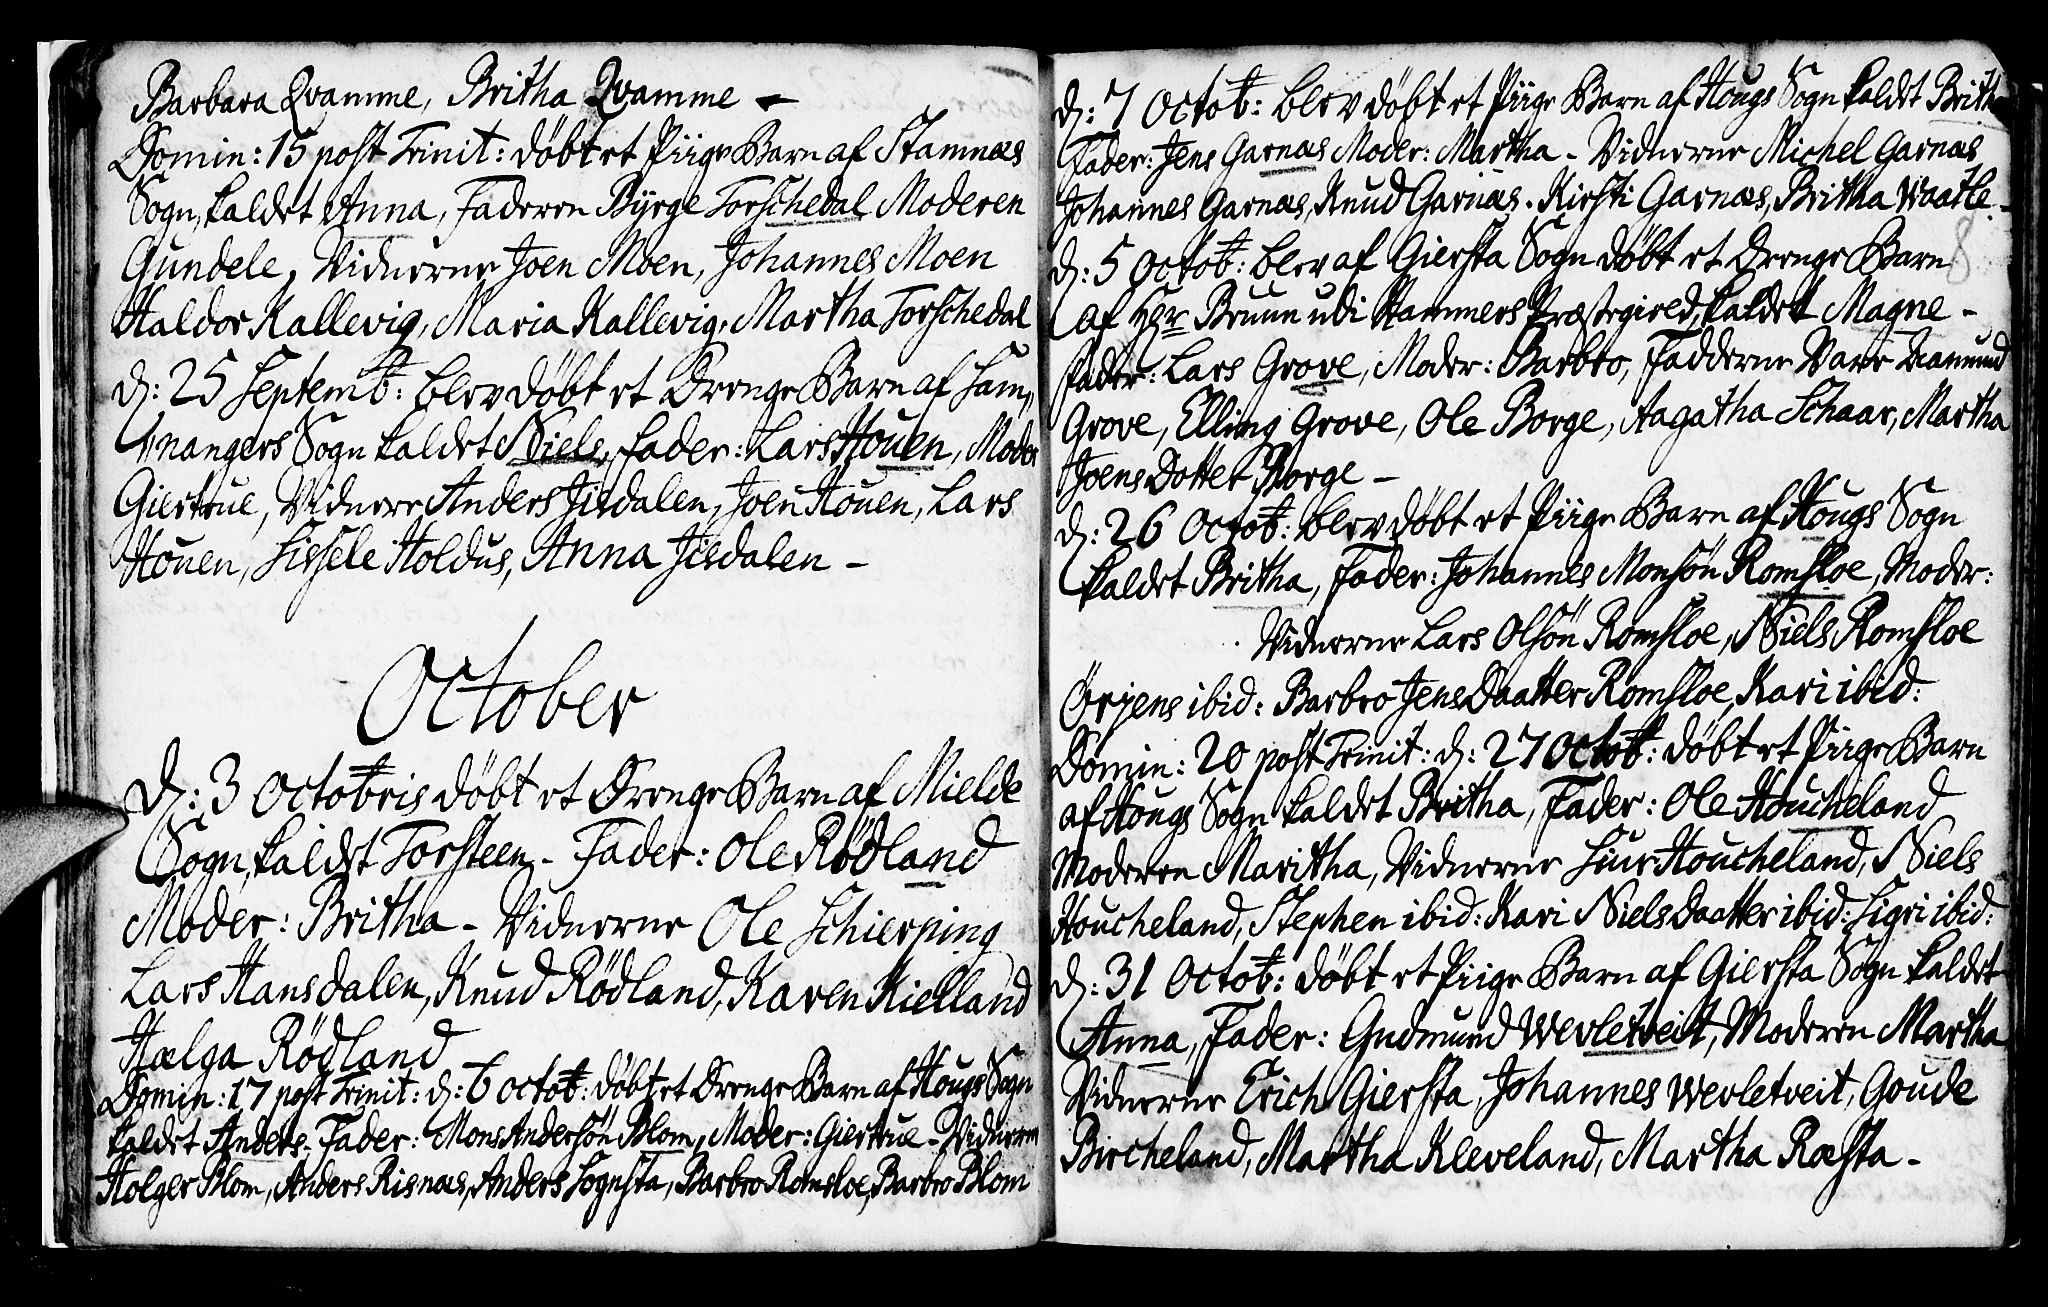 Barbara Qvamme, Britha Qvamme –
Domin: 15 post Trinit: döbt et Piige Barn af Stamnæs
Sogn, kaldet Anna, Faderen Byrge Torschedal Moderen
Gundele, Vidnerne Joen Moen, Johannes Moen
Haldor Kallevig, Maria Kallevig, Martha Torschedal
D: 25 Septemb: blev döbt et Drenge Barn af Sam,,
nangers Sogn kaldet Niels, Fader: Lars Houen, Moder
Giertrue, Vidnere Anders Jisdalen, Joen Houen, Lars
Houen, Sissele Holdus, Anna Jisdalen –
October
D: 3 Octobris döbt et Drenge Barn af Mielde
Sogn, kaldet Torsteen – Fader: Ole Rödland
Moder: Britha – Vidnerne Ole Schierping
Lars Hansdalen, Knud Rödland, Karen Kielland
Hælga Rödland
Domin: 17 post Trinit: d: 6 Octob: döbt et Drenge Barn af Hougs Sogn
kaldet Anders – Fader: Mons Andersön Blom, Moder: Giertrue – Vidnerne
Holger Blom, Anders Risnæs, Anders Sognsta, Barbro Romsloe, Barbro Blom
D: 7 Octob: blev döbt et Piige Barn af Hougs Sogn kaldet Britha
Fader: Jens Garnæs Moder: Martha – Vidnerne Michel Garnæs
Johannes Garnæs, Knud Garnæs. Kirsti Garnæs, Britha Waatle –
8
D: 5 Octob: blev af Giersta Sogn döbt et Drenge Barn
af Hgr Bruun udi Hammers Præstegield, kaldet Magne –
Fader: Lars Grove, Moder: Barbro, Fadderne Vare Aamund
Grove, Elling Grove, Ole Borge, Aagatha Schaar, Martha
Joens Dotter Borge –
D: 26 Octob: blev döbt et Piige Barn af Hougs Sogn
kaldet Britha, Fader: Johannes Monsön Romsloe, Moder:
Vidnerne Lars Olsön Romsloe, Niels Romsloe
Örjens ibid: Barbro Jens Daatter Romsloe, Kari ibid:
Domin: 20 post Trinit: d: 27 Octob: döbt et Piige Barn
af Hougs Sogn kaldet Britha, Fader: Ole Houcheland
Moderen Maritha, Vidnerne Siur Houcheland, Niels
Houcheland, Stephen ibid: Kari Niels Daatter ibid: Sigri ibid:
D: 31 Octob: döbt et Piige Barn af Giersta Sogn kaldet
Anna, Fader: Gudmund Wevletveit, Moderen Martha
Vidnerne Erich Giersta, Johannes Wevletveit, Goude
Bircheland, Martha Kleveland, Martha Ræsta –